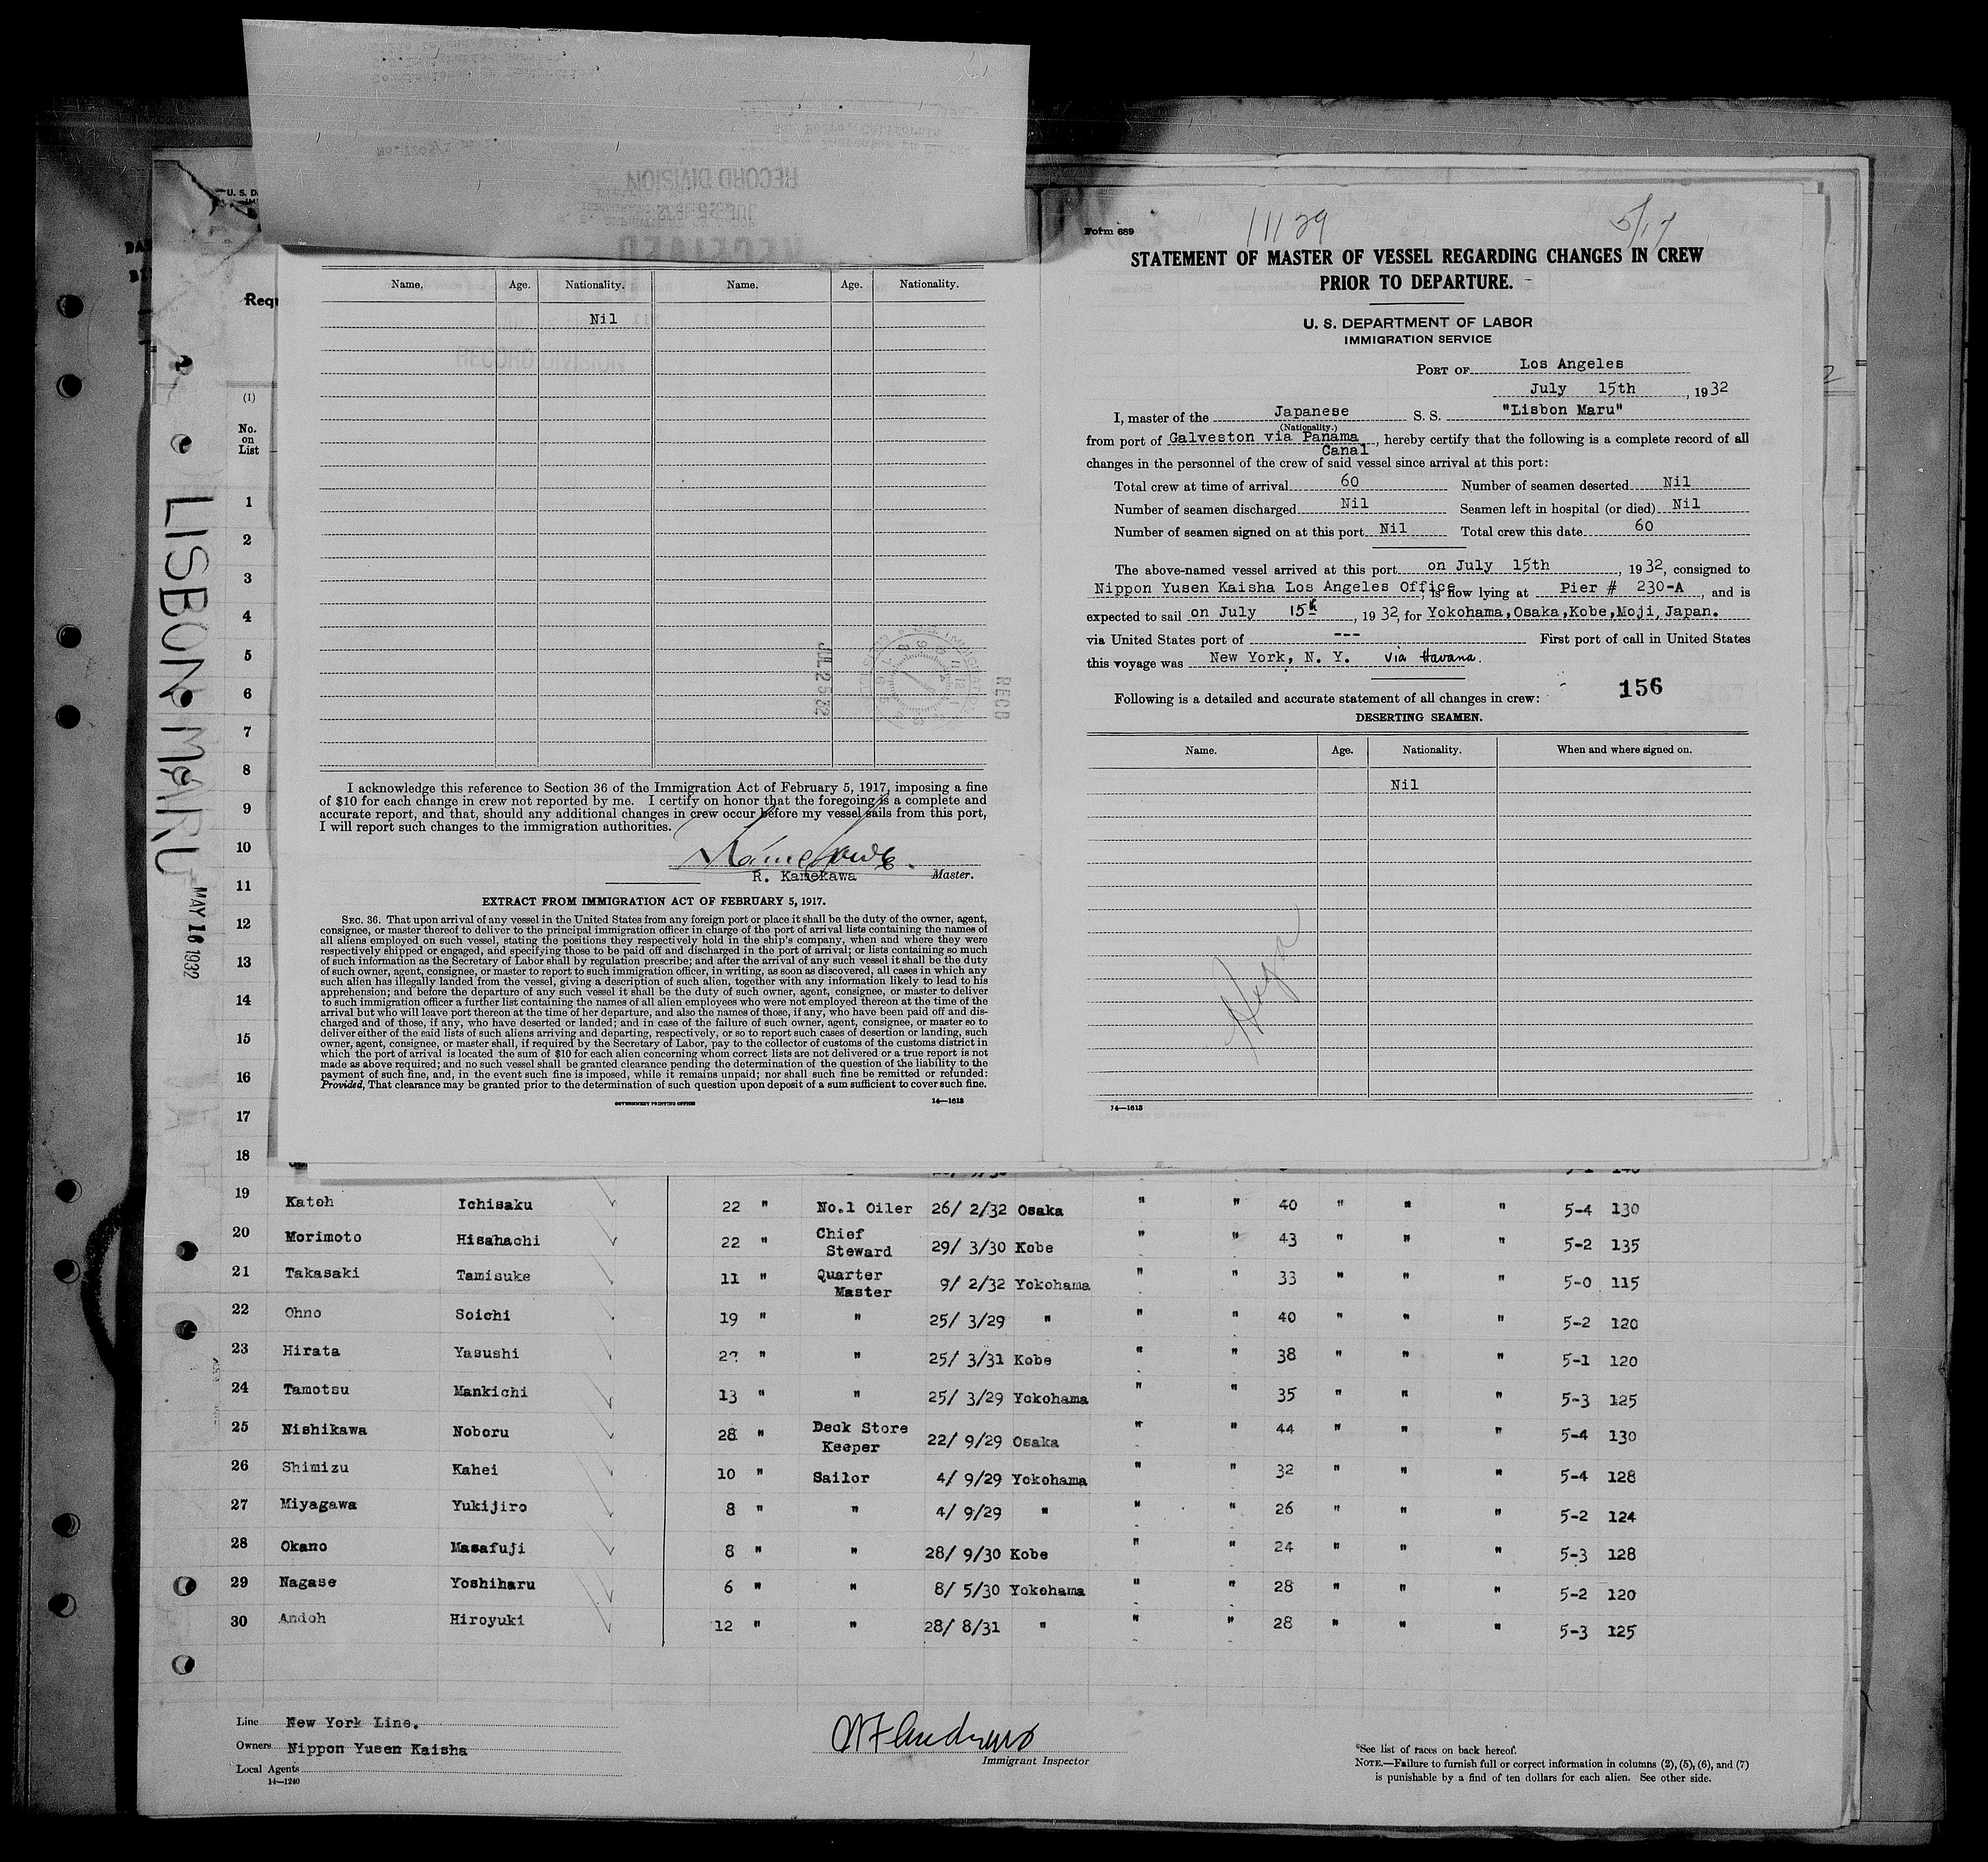 U. S. D
Requ
(1)
No.
on
List
LISBON MARU
MAY 16 1932
RECEIVED
JUL 25 1932
RECORD DIVISION
Name. Age. Nationality. Name. Age. Nationality.
Nil
JUL 25 32
RECD
I acknowledge this reference to Section 36 of the Immigration Act of February 5, 1917, imposing a fine
of $10 for each change in crew not reported by me. I certify on honor that the foregoing is a complete and
accurate report, and that, should any additional changes in crew occur before my vessel sails from this port,
I will report such changes to the immigration authorities.
R. Kamekawa Master.
EXTRACT FROM IMMIGRATION ACT OF FEBRUARY 5, 1917.
SEC. 36. That upon arrival of any vessel in the United States from any foreign port or place it shall be the duty of the owner, agent,
consignee, or master thereof to deliver to the principal immigration officer in charge of the port of arrival lists containing the names of
all aliens employed on such vessel, stating the positions they respectively hold in the ship's company, when and where they were
respectively shipped or engaged, and specifying those to be paid off and discharged in the port of arrival; or lists containing so much
of such information as the Secretary of Labor shall by regulation prescribe; and after the arrival of any such vessel it shall be the duty
of such owner, agent, consignee, or master to report to such immigration officer, in writing, as soon as discovered, all cases in which any
such alien has illegally landed from the vessel, giving a description of such alien, together with any information likely to lead to his
apprehension; and before the departure of any such vessel it shall be the duty of such owner, agent, consignee, or master to deliver
to such immigration officer a further list containing the names of all alien employees who were not employed thereon at the time of the
arrival but who will leave port thereon at the time of her departure, and also the names of those, if any, who have been paid off and dis-
charged and of those, if any, who have deserted or landed; and in case of the failure of such owner, agent, consignee, or master so to
deliver either of the said lists of such aliens arriving and departing, respectively, or so to report such cases of desertion or landing, such
owner, agent, consignee, or master shall, if required by the Secretary of Labor, pay to the collector of customs of the customs district in
which the port of arrival is located the sum of $10 for each alien concerning whom correct lists are not delivered or a true report is not
made as above required; and no such vessel shall be granted clearance pending the determination of the question of the liability to the
payment of such fine, and, in the event such fine is imposed, while it remains unpaid; nor shall such fine be remitted or refunded:
Provided, That clearance may be granted prior to the determination of such question upon deposit of a sum sufficient to cover such fine.
GOVERNMENT PRINTING OFFICE 14—1613
Form 689 11129 5/17
STATEMENT OF MASTER OF VESSEL REGARDING CHANGES IN CREW
PRIOR TO DEPARTURE.
U. S. DEPARTMENT OF LABOR
IMMIGRATION SERVICE
PORT OF Los Angeles
July 15th, 1932
I, master of the Japanese S. S. "Lisbon Maru"
(Nationality.)
from port of Galveston via Panama Canal, hereby certify that the following is a complete record of all
changes in the personnel of the crew of said vessel since arrival at this port:
Total crew at time of arrival 60 Number of seamen deserted Nil
Number of seamen discharged Nil Seamen left in hospital (or died) Nil
Number of seamen signed on at this port Nil Total crew this date 60
The above-named vessel arrived at this port on July 15th, 1932, consigned to
Nippon Yusen Kaisha Los Angeles Office, is now lying at Pier # 230-A, and is
expected to sail on July 15th, 1932, for Yokohama,Osaka,Kobe,Moji,Japan.
via United States port of --- First port of call in United States
this voyage was New York, N. Y. via Havana.
156
Following is a detailed and accurate statement of all changes in crew:
DESERTING SEAMEN.
Name. Age. Nationality. When and where signed on.
Nil
14—1613
1
2
3
4
5
6
7
8
9
10
11
12
13
14
15
16
17
18
19 Katoh Ichisaku 22 " No.1 Oiler 26/ 2/32 Osaka " " 40 " " " 5-4 130
20 Morimoto Hisahachi 22 " Chief Steward 29/ 3/30 Kobe " " 43 " " " 5-2 135
21 Takasaki Tamisuke 11 " Quarter Master 9/ 2/32 Yokohama " " 33 " " " 5-0 115
22 Ohno Soichi 19 " " 25/ 3/29 " " " 40 " " " 5-2 120
23 Hirata Yasushi " " 25/ 3/31 Kobe " " 38 " " " 5-1 120
24 Tamotsu Mankichi 13 " " 25/ 3/29 Yokohama " " 35 " " " 5-3 125
25 Nishikawa Noboru 28 " Deck Store Keeper 22/ 9/29 Osaka " " 44 " " " 5-4 130
26 Shimizu Kahei 10 " Sailor 4/ 9/29 Yokohama " " 32 " " " 5-4 128
27 Miyagawa Yukijiro 8 " " 4/ 9/29 " " " 26 " " " 5-2 124
28 Okano Masafuji 8 " " 28/ 9/30 Kobe " " 24 " " " 5-3 128
29 Nagase Yoshiharu 6 " " 8/ 5/30 Yokohama " " 28 " " " 5-2 120
30 Andoh Hiroyuki 12 " " 28/ 8/31 " " " 28 " " " 5-3 125
Line New York Line.
Owners Nippon Yusen Kaisha
Local Agents
14—1240
Immigrant Inspector
*See list of races on back hereof.
NOTE.—Failure to furnish full or correct information in columns (2), (5), (6), and (7)
is punishable by a find of ten dollars for each alien. See other side.